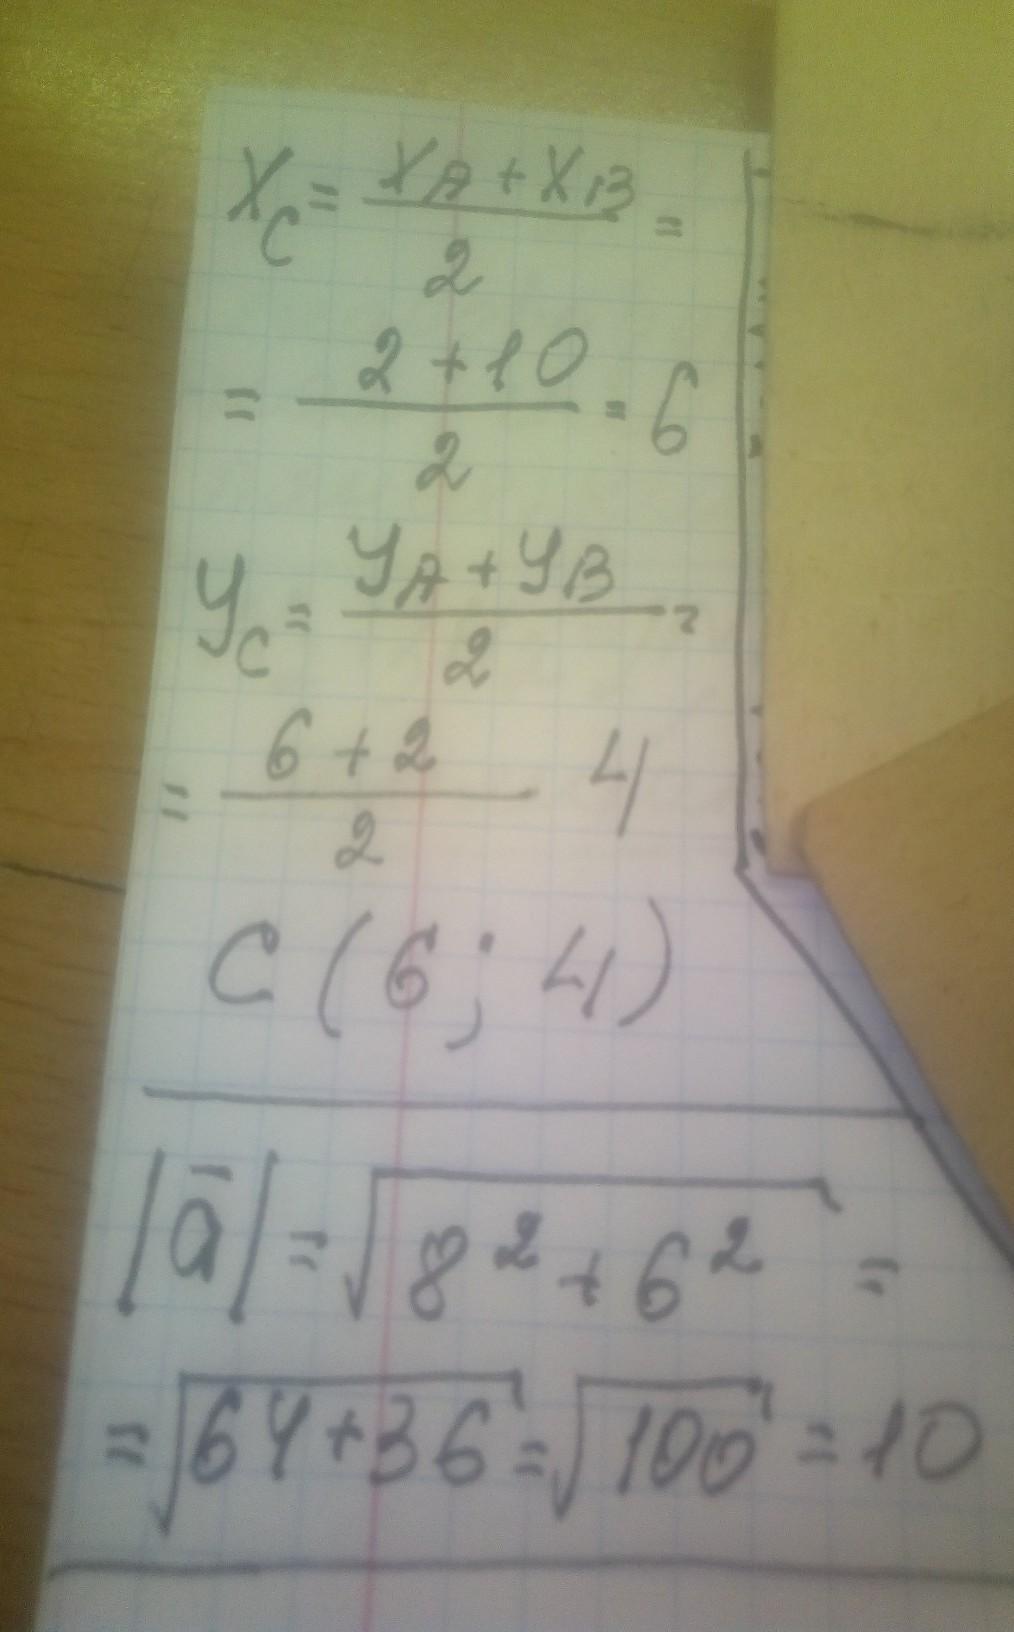 X_C = (X_A + X_B)/2 =
= (2 + 10)/2 = 6
y_C = (y_A + y_B)/2 =
= (6 + 2)/2 4
C (6 ; 4)
|ā| = √(8² + 6²) =
= √(64 + 36) = √100 = 10